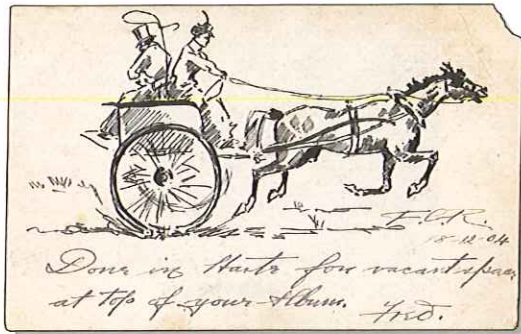 F.C.R.
15-12-04
Done in Haste for vacant space
at top of your Album.
Fred.